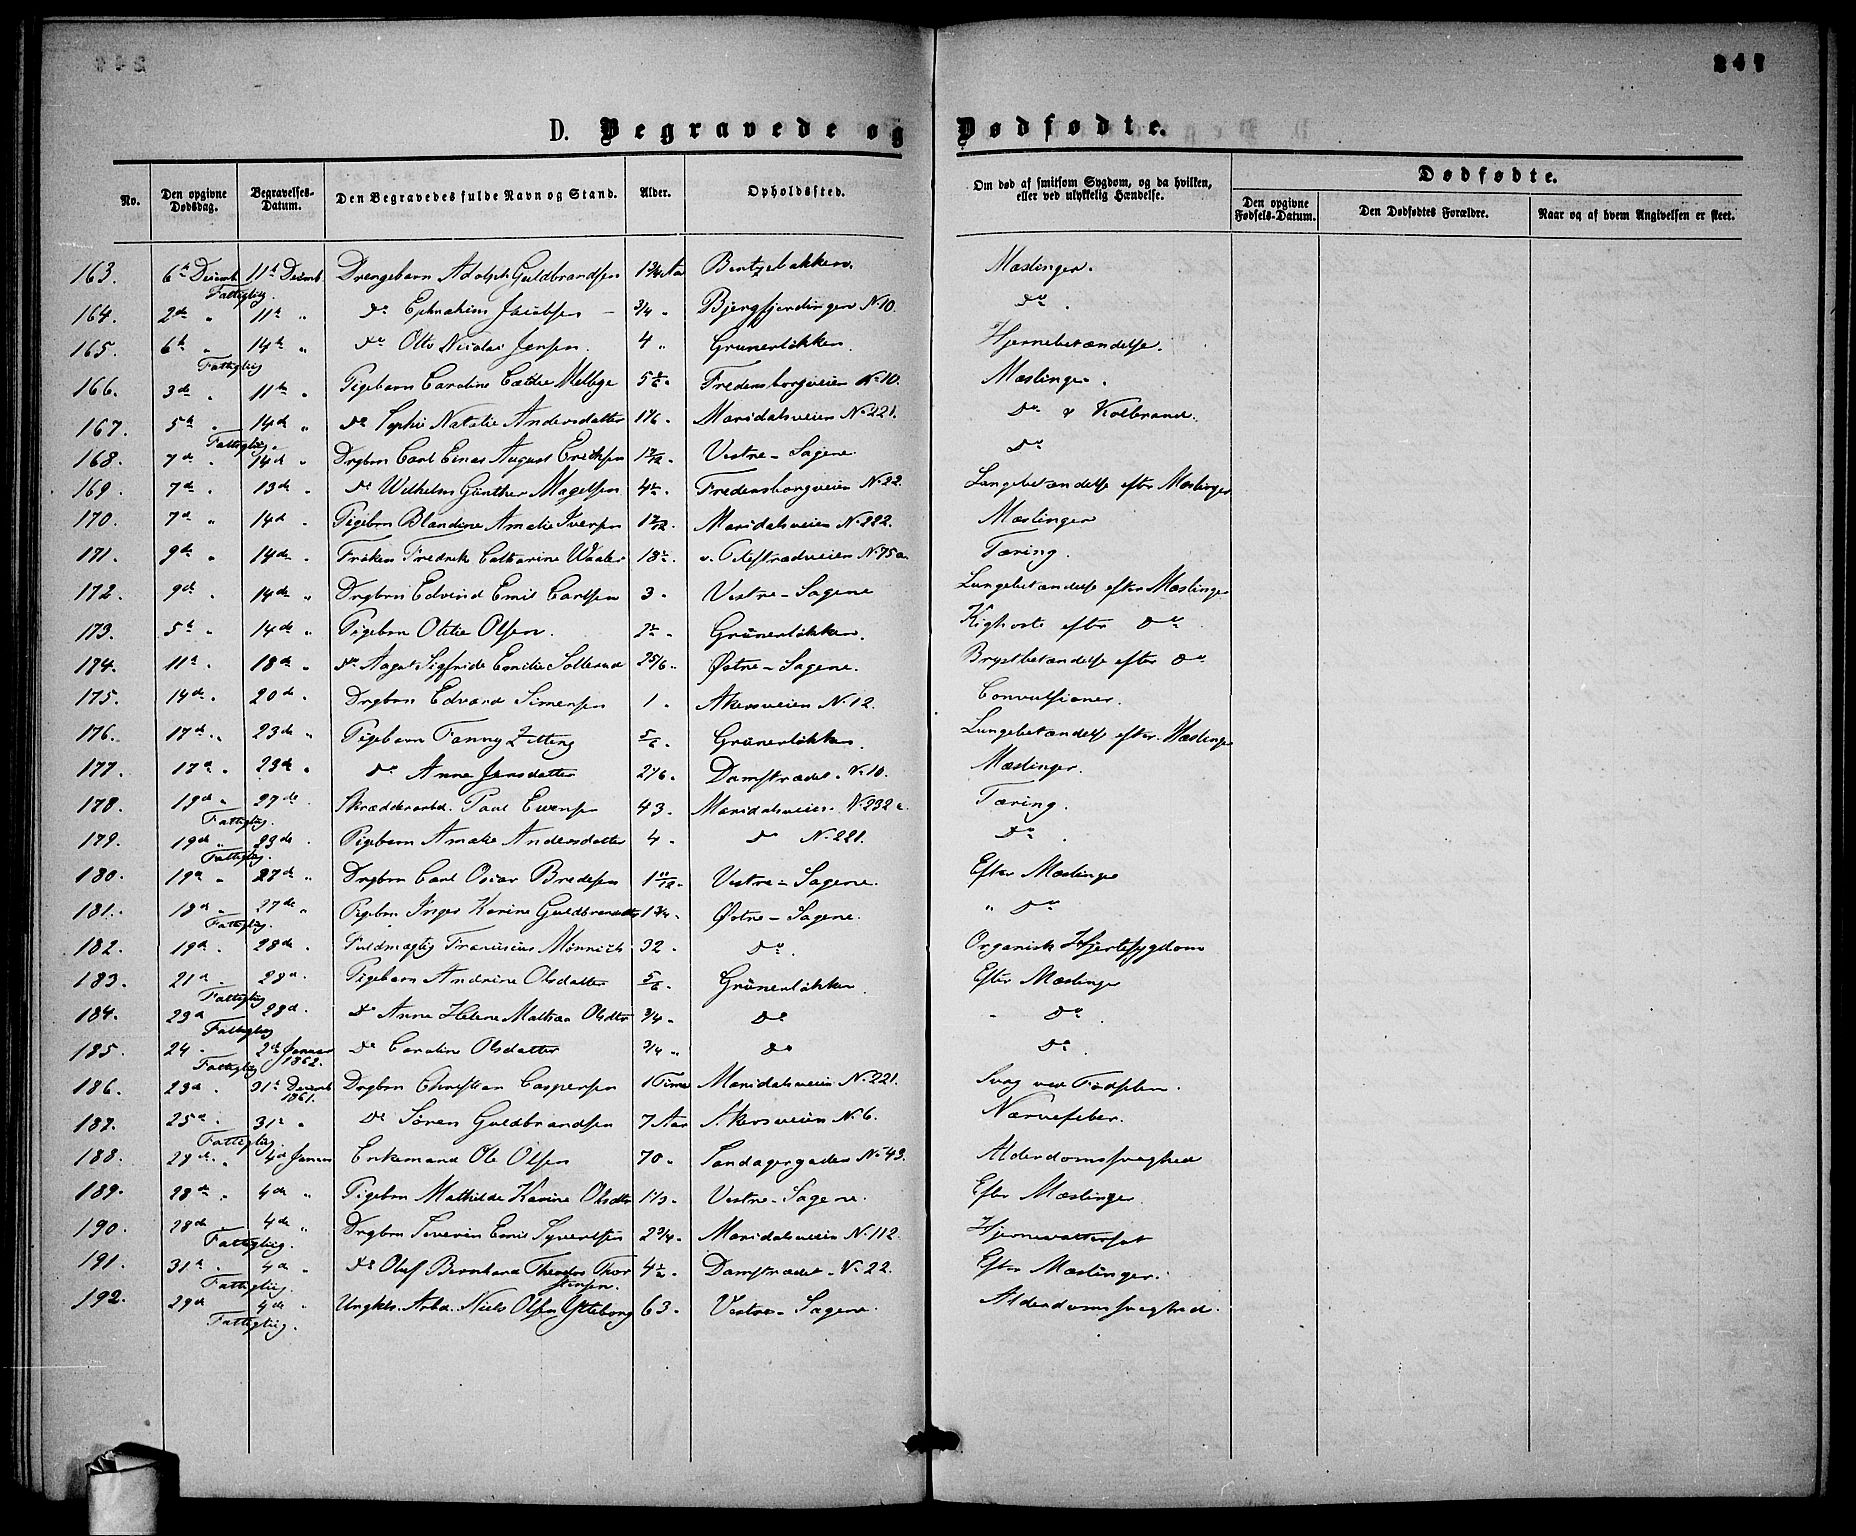 247
D. Begravede og Dødfødte.
No. Den opgivne Dødsdag. Begravelses-Datum. Den Begravedes fulde Navn og Stand. Alder. Opholdssted. Om død af smitsom Sygdom, og da hvilken, eller ved ulykkelig Hændelse. Dødfødte.
Den opgivne Fødsels-Datum. Den Dødfødtes Forældre. Naar og af hvem Angivelsen er skeet.
163. 6te Decemb 11te Decemb Drengebarn Adolph Guldbrandsen 1 3/4 Aar Bentzebakken. Mæslinger.
Fattiglig.
164. 2de " 11te " Do Ephraim Jacobsen 3/4 " Bjergfjerdingen No 10. Do.
165. 6te " 14de " Do Otto Nicolai Jensen. 4 " Grünerløkken. Hjernebetændelse.
Fattiglig
166. 3de " 11te " Pigebarn Caroline Mellbye 5 1/2 " Fredensborgveien No 10. Mæslinger.
167. 5te " 14de " Do Sophie Natalie Andersdatter 1 1/6 " Maridalsveien No 221. Do & Kolbrand.
Fattiglig.
168. 7de " 14de " Drgbrn Carl Einar August Erichsen 1 " Vestre-Sagene. Do
169. 7de " 13de " Do Wilhelm Günther Magelsen 4 1/2 " Fredensborgveien No 22. Lungebetændelse efter Mæslinger
170. 7de " 14de " Pigebrn Blandine Amalie Iversen 1 " Maridalsveien No 222. Mæslinger
171. 9de " 14de " Frøken Fredrik Catharine Waaler 18 1/2 " v. Ullevoldsveien No 75a. Tæring.
172. 9de " 14de " Drgbrn Edvind Emil Carlsen 3 " Vestre-Sagene Lungebetændelse efter Mæslinger
173. 5te " 14de " Pigebrn Otilie Olsen. 2 1/2 " Grünerløkken. Kighoste efter Do
174. 11te " 18de " Do Aagot Sigfride Emilie Solerud 2 5/6 " Østre-Sagene. Brystbetændelse efter Do
175. 14de " 20de " Drgbrn Edvard Simensen 1 " Akersveien No 12. Convulsioner.
176. 17de " 23de " Pigebarn Fanny Zitting 5/6 " Grünerløkken Lungebetændelse efter Mæslinger
177. 17de " 23de " Do Anne Jensdatter 2 1/6 " Damstrædet No 10. Mæslinger.
178. 19de " 27de " Skrædderarbd. Paul Evensen 43 " Maridalsveien No 232 Tæring.
Fattiglig.
179. 19de " 23de " Pigebarn Amalie Andersdatter 4 " Do No 221. Do.
Fattiglig.
180. 19de " 27de " Drgbrn Carl Oscar Bredesen 1 11/12 " Vestre-Sagene. Efter Mæslinger
181. 18de " 27de " Pigebrn Inger Karine Guldbrandsdtr 1 3/4 " Østre-Sagene. " Do
Fattiglig.
182. 19de " 28de " Fuldmægtig Franciscus Mønnich 32 " Do. Organisk Hjertesygdom
183. 21de " 28de " Pigebarn Andrine Olsdatter 5/6 " Grünerløkken. Efter Mæslinger
Fattiglig
184. 23de " 28de " Do Anne Helene Mathea Olsdtr 3/4 " Do " Do.
Fattiglig
185. 24 " 2den Januar 1862. Do Caroline Olsdatter 3/4 " Do Do.
Fattiglig
186. 23de " 31te Decemb 1861. Drgbrn Christian Caspersen 1 Time Maridalsveien No 221. Svag ved Fødselen.
187. 25de " 31te " Do Søren Guldbrandsen 7 Aar Akersveien No 6. Nærvefeber.
Fattiglig.
188. 28de " 4de Januar Enkemand Ole Olsen 70 " Sandagergaden No 43. Alderdomssvaghed
189. 28de " 4de " Pigebrn Mathilde Karine Olsdtr 1 1/3 " Vestre-Sagene. Efter Mæslinger
190. 28de " 4de " Drgbrn Severin Emil Syvertsen 2 3/4 " Maridalsveien No 112. Hjernevattersot
Fattiglig.
191. 31te " 4de " Do Oluf Bernhard Theodor Thorstensen. 4 1/2 " Damstrædet No 22. Efter Mæslinger.
Fattiglig.
192. 29de 4de " Ungkl. Arbd. Niels Olsen Ytteborg 63 " Vestre-Sagene. Alderdomssvaghed.
Fattiglig.